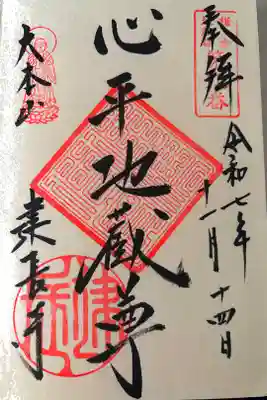 奉拝
令和七年
十一月十四日
心平地蔵尊
大本山
建長寺